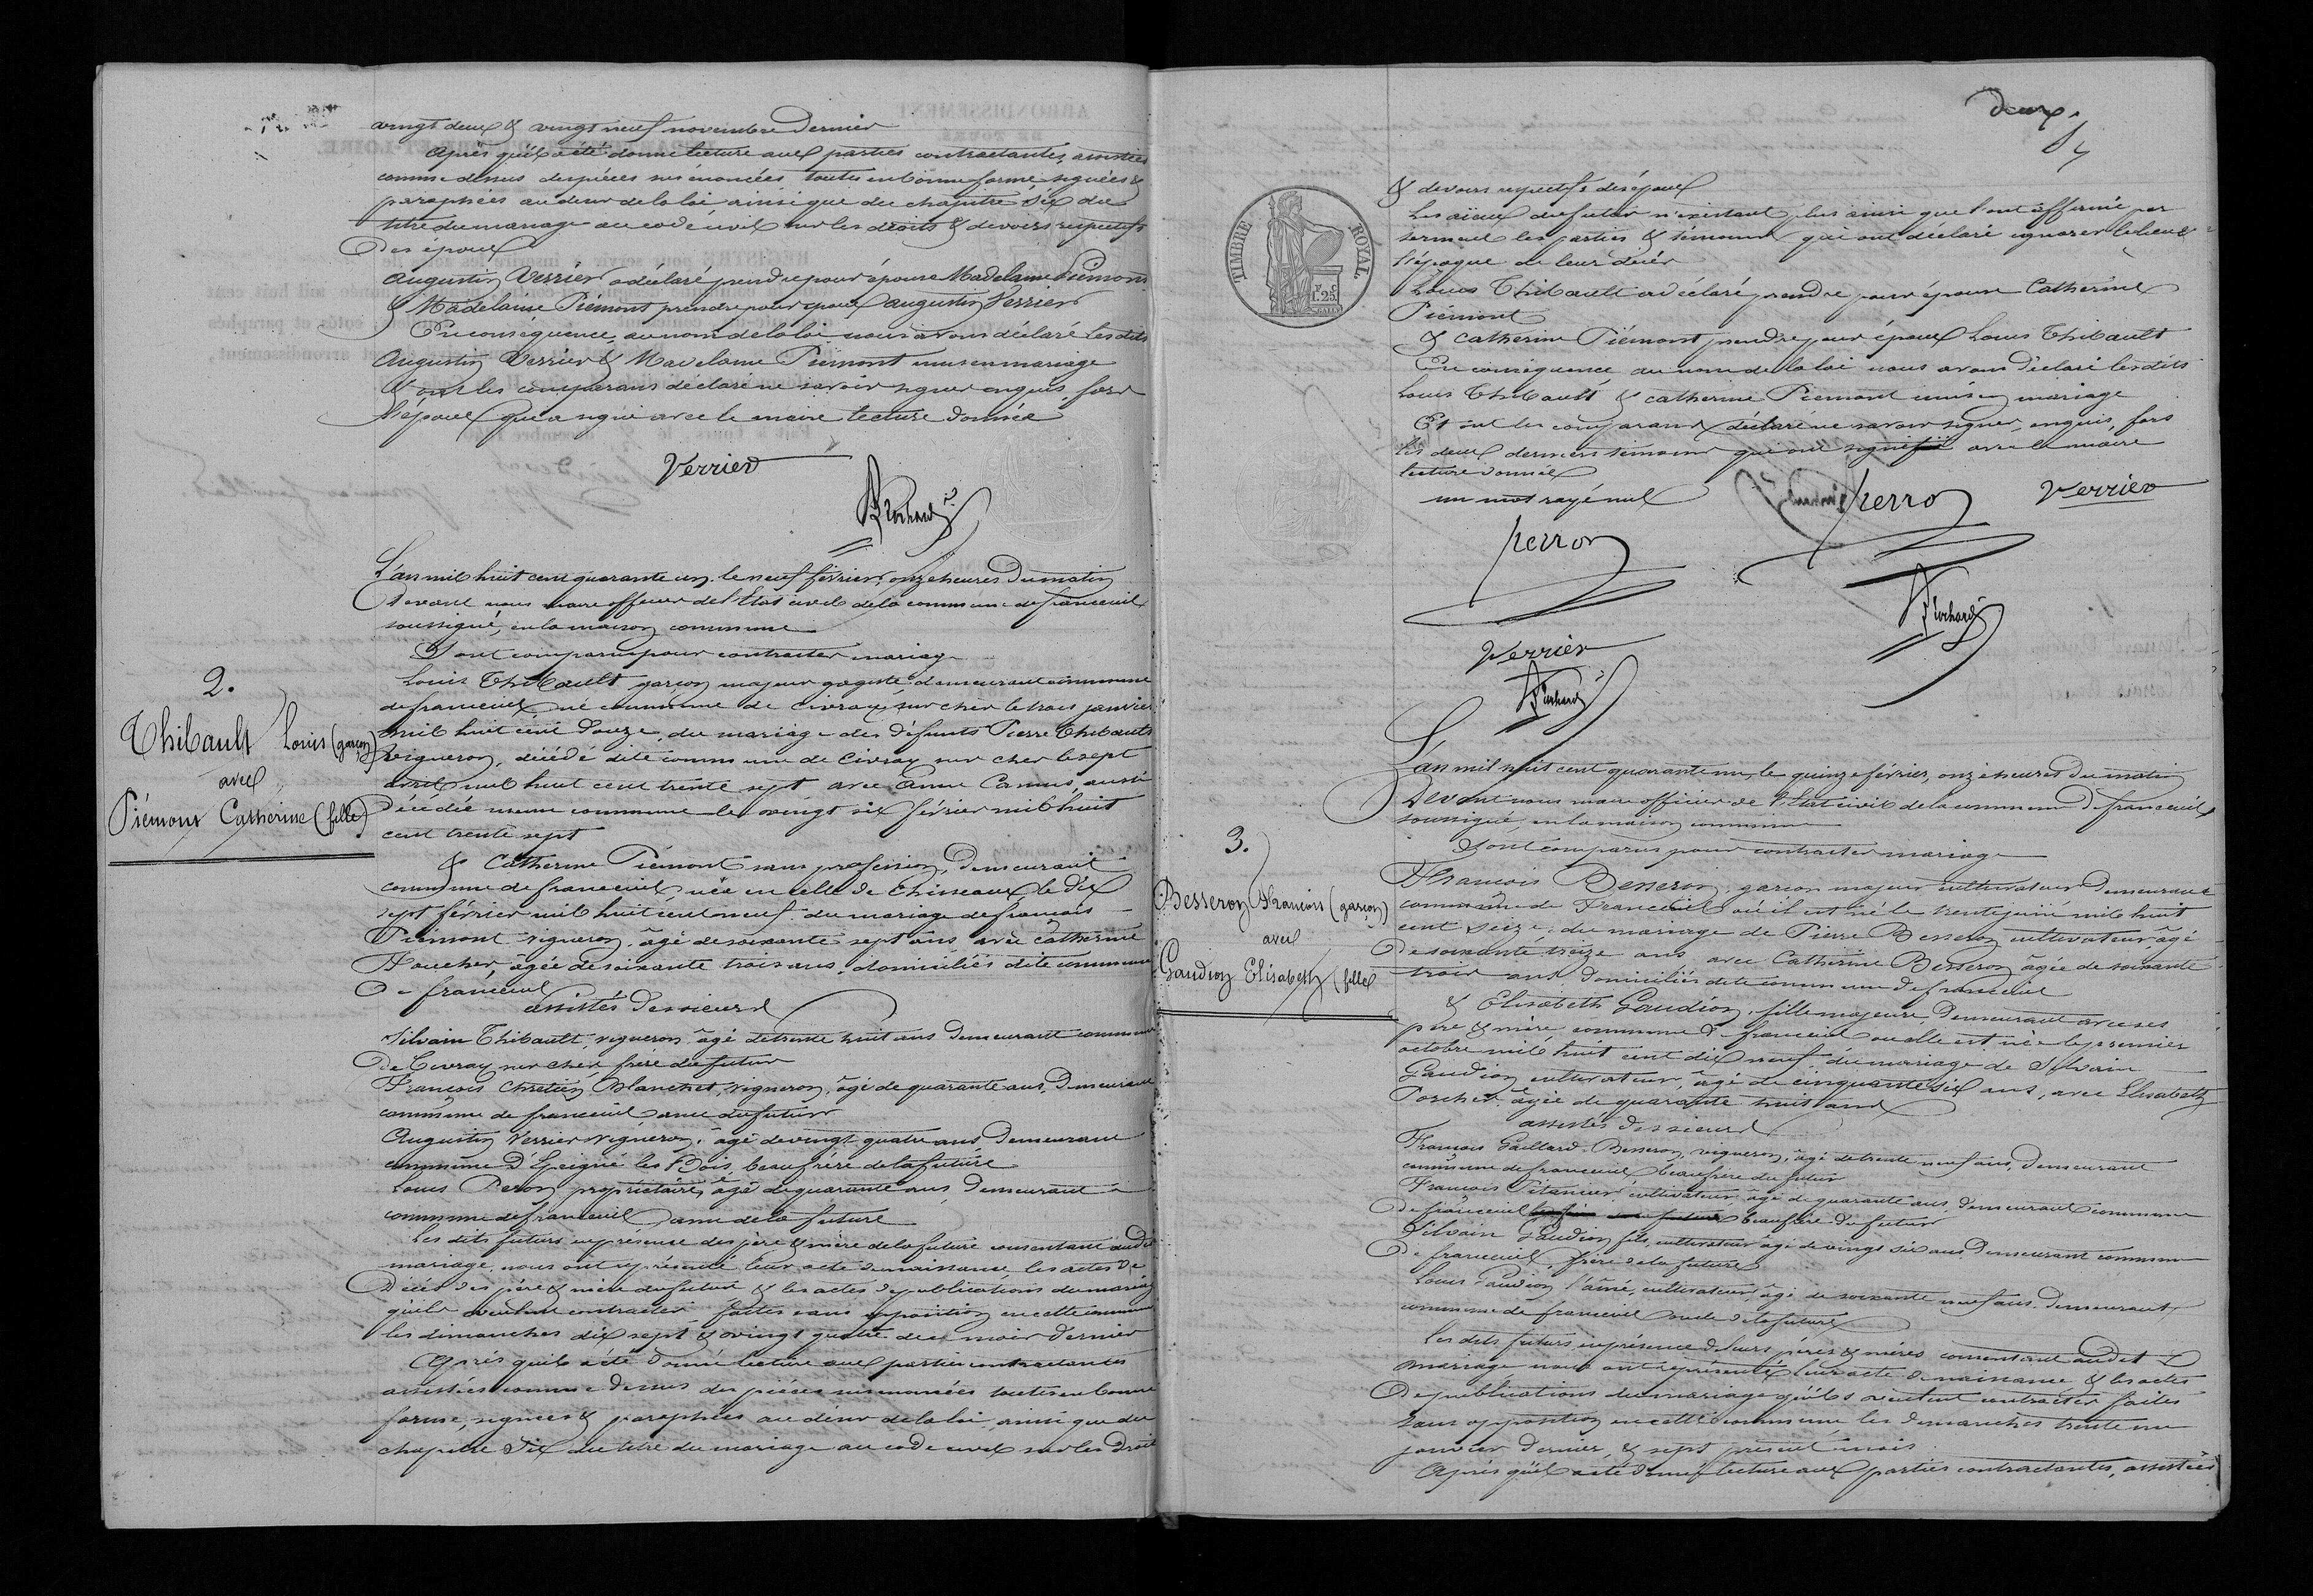 vingt deux & vingt neuf novembre dernier
Après qu'il a été donné lecture aux parties contractantes, assistées
comme dessus des pièces sus énoncées toutes en bonne forme signées &
paraphées au desir de la loi ainsi que du chapitre Six du
titre du mariage au code civil sur les droits & devoirs respectifs
Des époux
Augustin Verrier a déclaré prendre pour épouse Madelaine Piémont
& Madelaine Piémont prendre pour époux Augustin Verrier
En conséquence, au nom de la loi nous avons déclaré les dits
Augustin Verrier & Madelaine Piémont unis en mariage
& ont les comparans déclaré ne savoir signer enquis, fors
l'époux qui a signé avec le maire lecture donnée
Verrier
2.
Thibault Louis (garçon)
avec
Piémont Catherine (fille)
L'an mil huit cent quarante un, le neuf février, onze heures du matin
Devant nous maire officier de l'état civil de la commune de franceuil
soussigné, en la maison commune
Sont comparus pour contracter mariage
Louis Thibault garçon majeur gagiste demeurant commune
de franceuil, né commune de Civray sur cher le trois janvier
mil huit cent douze, du mariage des défunts Pierre Thibault
vigneron, décédé dite commune de Civray sur cher le sept
avril mil huit cent trente sept avec Anne Camus, aussi
Décédée même commune le vingt six février mil huit
cent trente sept
& Catherine Piémont sans profession, Demeurant
commune de franceuil, née en celle de Chisseaux, le dix
sept février mil huit cent neuf du mariage de françois
Piémont vigneron, âgé de soixante sept ans, avec Catherine
Foucher, âgée de soixante trois ans, domiciliés dite commune
De franceuil
assistés Des sieurs
Silvain Thibault, vigneron, âgé de trente huit ans demeurant commune
De Civray sur cher, frère du futur
François Chretien Blanchet, vigneron, âgé de quarante ans, Demeurant
commune de franceuil ami du futur
Augustin Verrier vigneron, âgé de vingt quatre ans Demeurant
commune d'Epeigné les Bois, beaufrère de la future
Louis Peron propriétaire, âgé de quarante ans Demeurant
commune de franceuil, ami de la future
Les dits futurs en présence des père & mère de la future consentant audit
mariage, nous ont représenté leur acte de naissance les actes de
Décès des père & mère du futur & les actes de publications du mariage
qu'ils veulent contracter faites sans opposition en cette commune
les dimanches dix sept & vingt quatre du mois dernier
Après qu'il a été donné lecture aux parties contractantes
assistées comme dessus des pièces sus énoncées toutes en bonne
forme, signées & paraphées au désir de la loi, ainsi que du
chapitre Six du titre du mariage au code civil sur les droits
deux.
TIMBRE ROYAL
1.25
& devoirs respectifs des époux
Les aïeux du futur n'existant plus ainsi que l'ont affirmé par
serment les parties & témoins qui ont déclaré ignorer le lieu &
l'époque de leur décès
Louis Thibault a déclaré prendre pour épouse Catherine
Piémont
& Catherine Piémont prendre pour époux Louis Thibault
En conséquence au nom de la loi nous avons déclaré les dits
Louis Thibault & Catherine Piémont unis en mariage
Et ont les comparans déclaré ne savoir signer, enquis, fors
les deux derniers témoins qui ont signé avec le maire
lecture donnée
un mot rayé nul
perron
Verrier
perron
Verrier
3.
Besseron François (garçon)
avec
Gaudion Elisabeth (fille)
L'an mil huit cent quarante un, le quinze février, onze heures du matin
Devant nous maire officier de l'état civil de la commune de franceuil
soussigné, en la maison commune
Sont comparus pour contracter mariage
François Besseron, garçon majeur cultivateur demeurant
commune de Franceuil où il est né le trente juin mil huit
cent seize, du mariage de Pierre Besseron cultivateur, âgé
De soixante treize ans avec Catherine Besseron âgée de soixante
trois ans domiciliés dite commune de franceuil
& Elisabeth Gaudion, fille majeure demeurant avec ses
père & mère commune de franceuil où elle est née le premier
octobre mil huit cent dix neuf du mariage de Silvain
Gaudion cultivateur, âgé de cinquante six ans, avec Elisabeth
Porcher âgée de quarante huit ans
assistés des sieurs
François Gaillard-Besseron, vigneron, âgé de trente neuf ans, demeurant
commune de franceuil beaufrère du futur
François cultivateur âgé de quarante ans, demeurant commune
de franceuil beaufrère du futur
Silvain Gaudion fils, cultivateur âgé de vingt six ans Demeurant commune
De franceuil, frère de la future
Louis Gaudion l'aîné, cultivateur, âgé de soixante neuf ans, Demeurant
commune de franceuil oncle de la future
Les dits futurs en présence de leurs pères & mères consentant audit
mariage nous ont représenté leur acte de naissance & les actes
De publications du mariage qu'ils veulent contracter faites
sans opposition en cette commune les dimanches trente un
janvier dernier, & sept présent mois
Après qu'il a été donné lecture aux parties contractantes, assistées